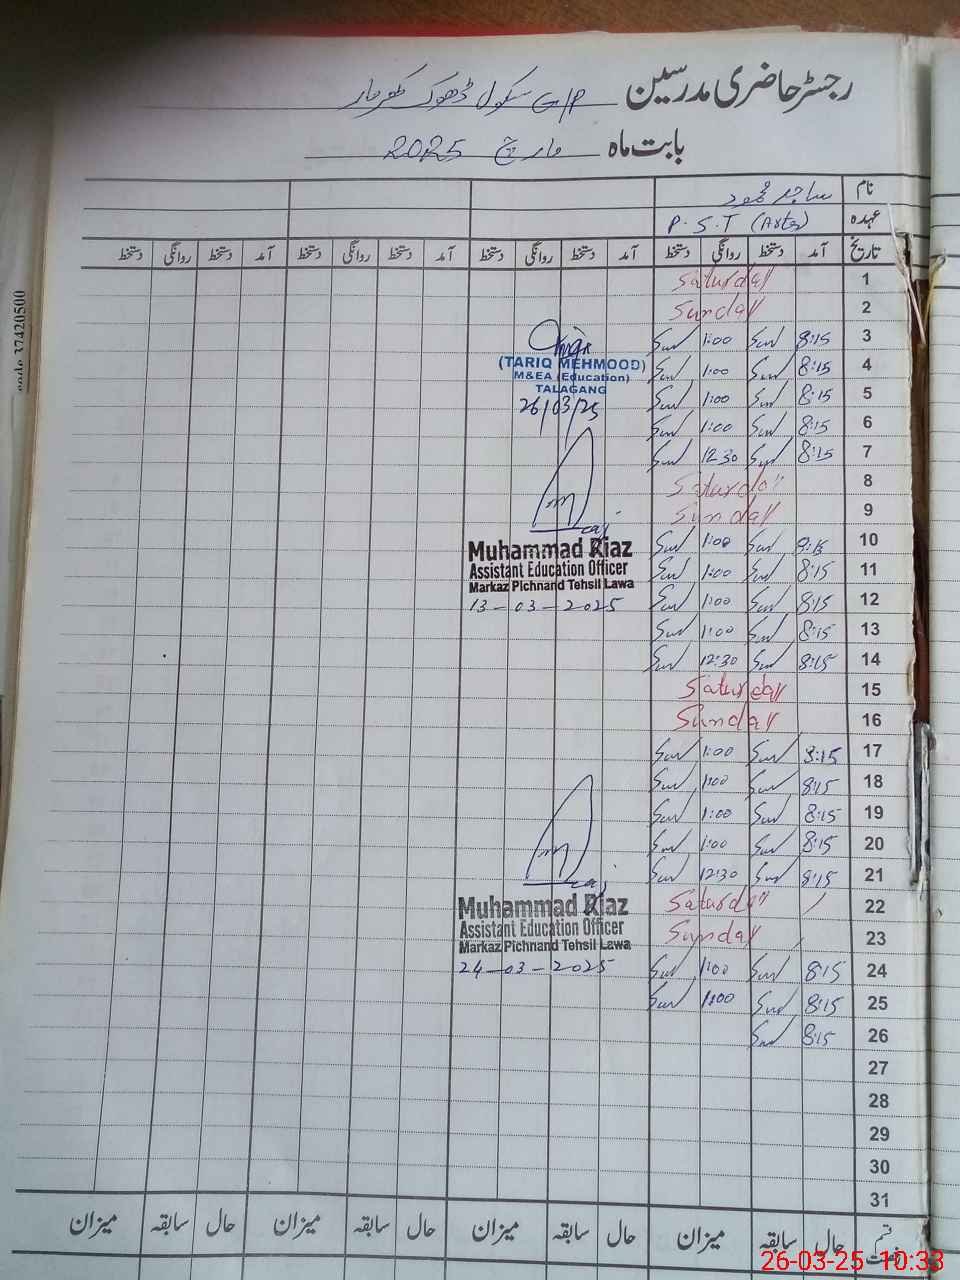 رجسٹر حاضری مدرسین G/P سکول ڈھوک
بابت ماہ مارچ 2025
نام ساجد محمود
عہدہ P.S.T (Arts)
تاریخ آمد دستخط روانگی دستخط آمد دستخط روانگی دستخط آمد دستخط روانگی دستخط آمد دستخط روانگی دستخط
1 Saturday
2 Sunday
3 8:15 1:00
4 8:15 1:00
5 8:15 1:00
6 8:15 1:00
7 8:15 12:30
8 Saturday
9 Sunday
10 8:15 1:00
11 8:15 1:00
12 8:15 1:00
13 8:15 1:00
14 8:15 12:30
15 Saturday
16 Sunday
17 8:15 1:00
18 8:15 1:00
19 8:15 1:00
20 8:15 1:00
21 8:15 12:30
22 Saturday
23 Sunday
24 8:15 1:00
25 8:15 1:00
26 8:15
27
28
29
30
31
(TARIQ MEHMOOD)
M&EA (Education)
TALAGANG
26/03/25
Muhammad Riaz
Assistant Education Officer
Markaz Pichnand Tehsil Lawa
13-03-2025
Muhammad Riaz
Assistant Education Officer
Markaz Pichnand Tehsil Lawa
24-03-2025
قسم رخصت حال سابقہ میزان حال سابقہ میزان حال سابقہ میزان حال سابقہ میزان
code 37420500
26-03-25 10:33